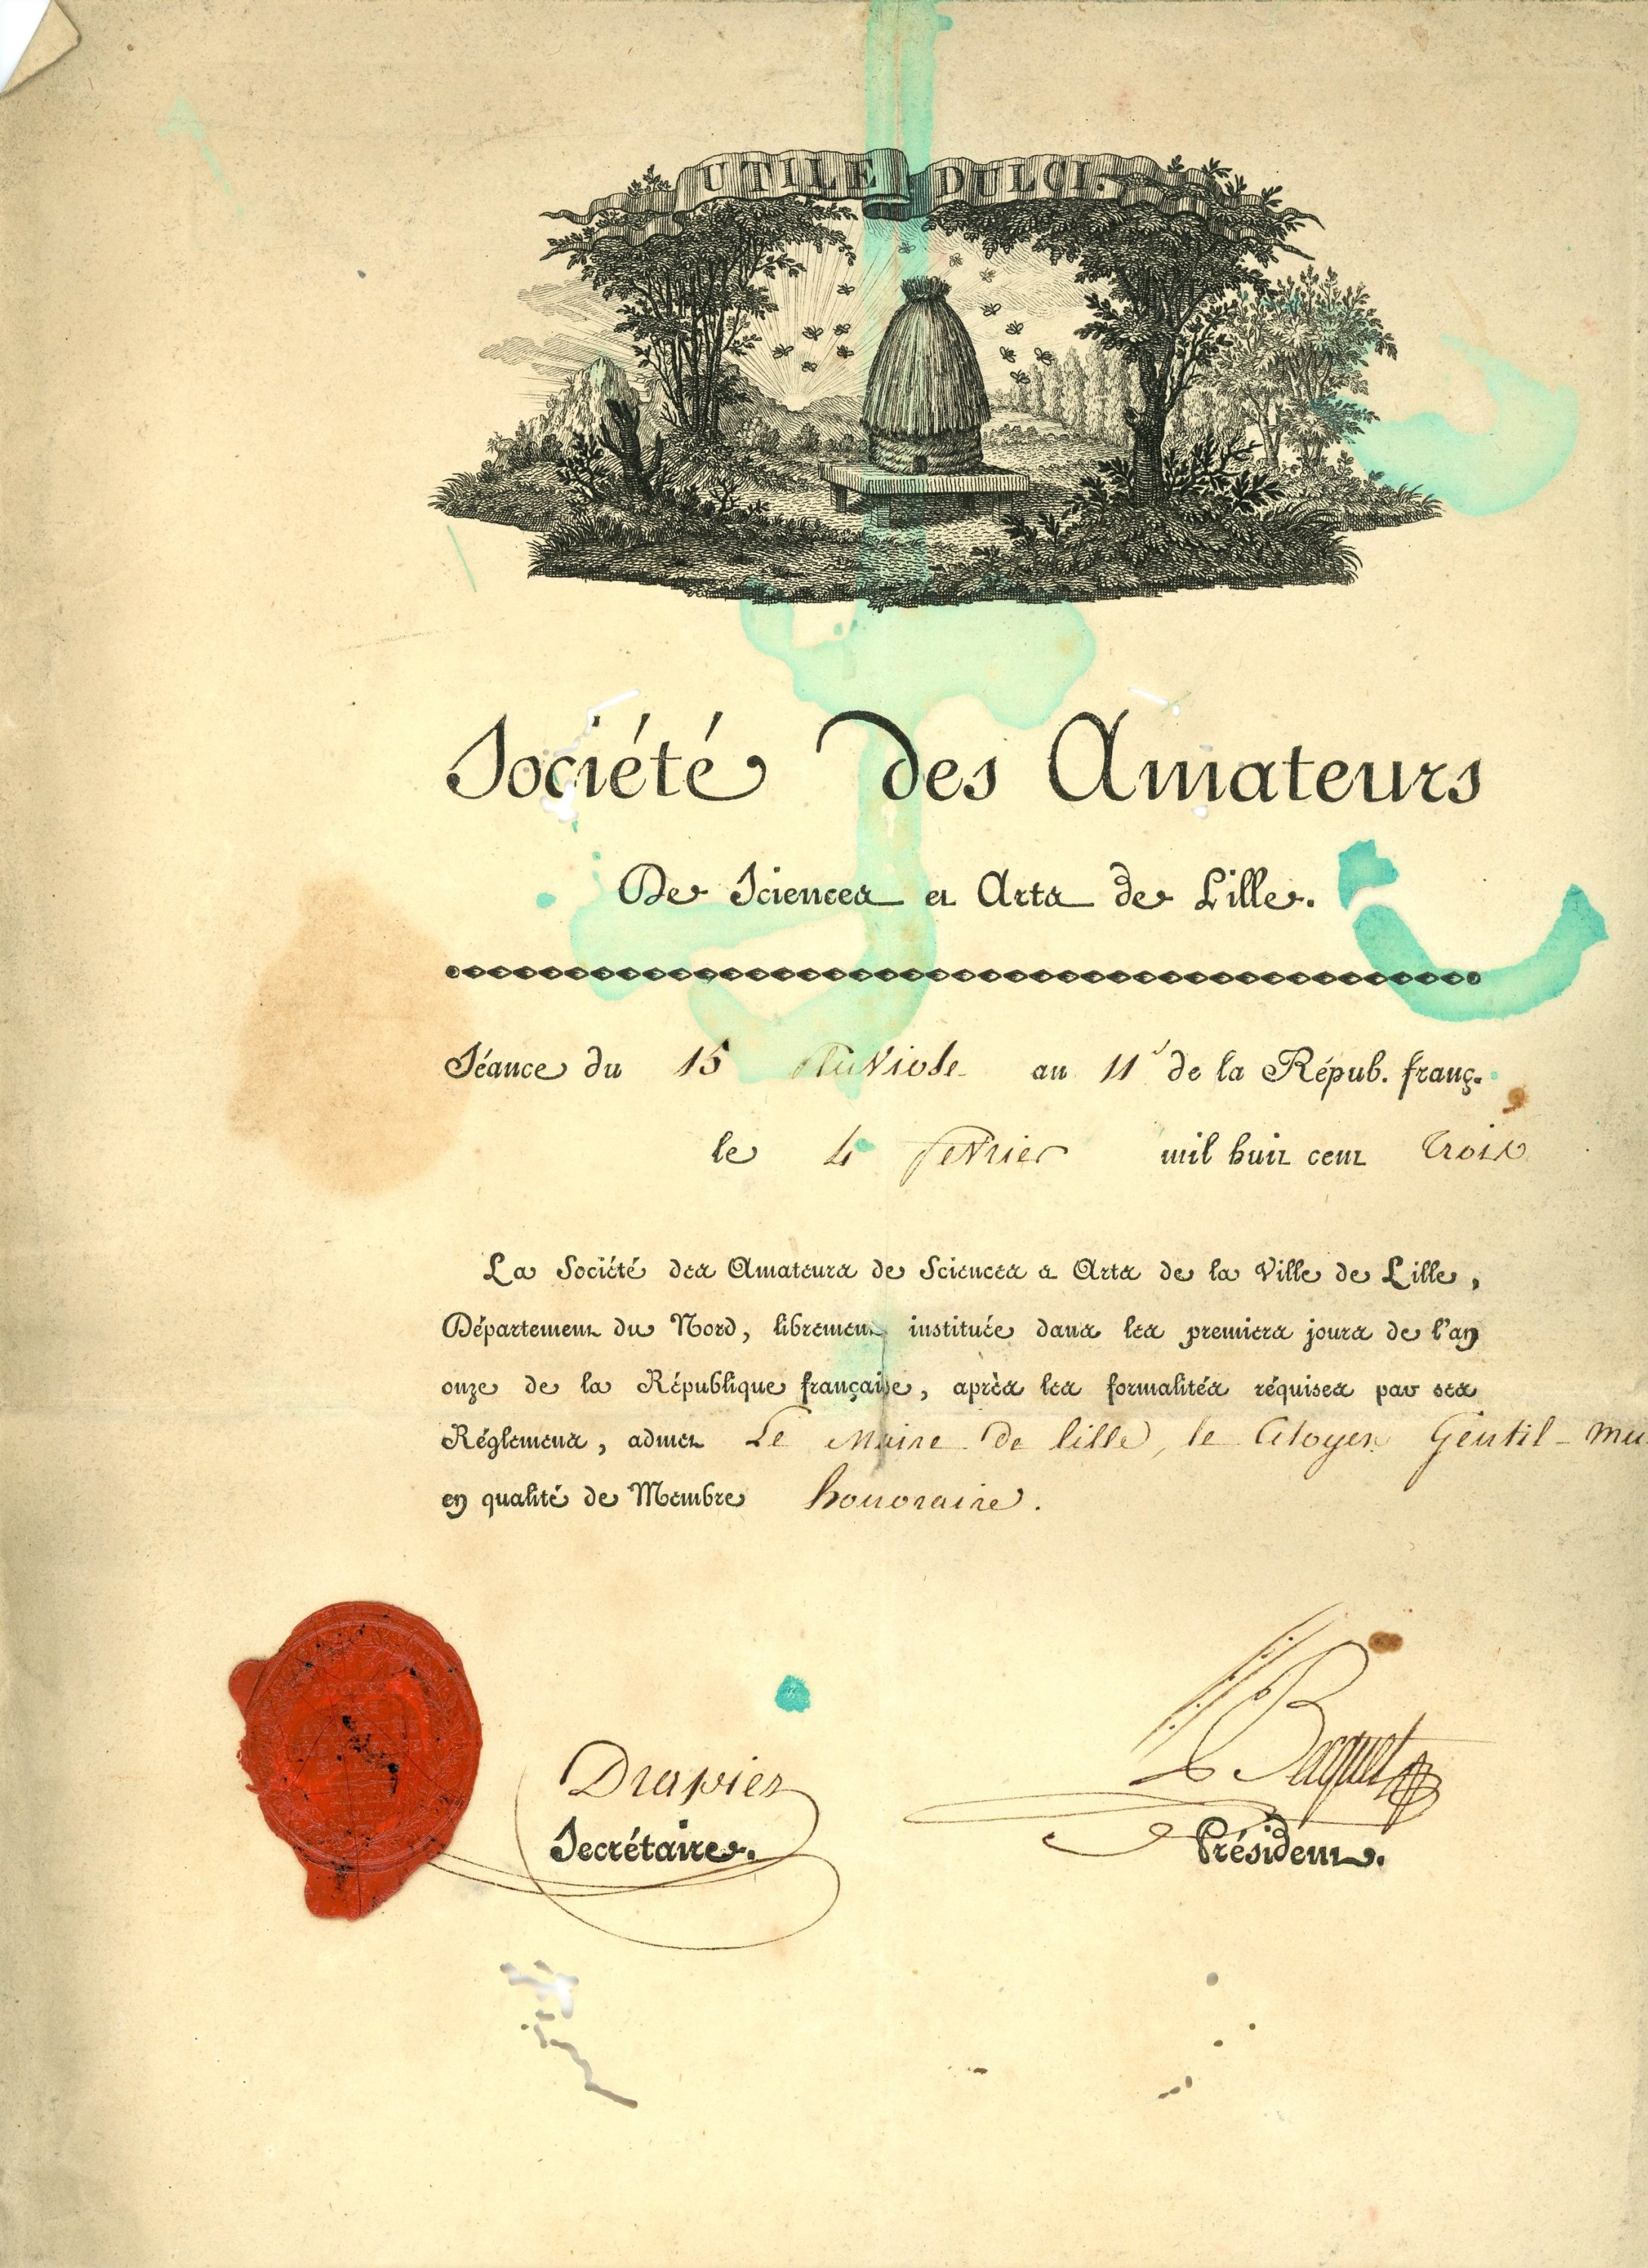 UTILE DULCI.
Société des Amateurs
De Sciences et Arts de Lille.
Séance du 15 Pluviose an 11e de la Répub. franç.
le 4 fevrier mil huit cent trois
La Société des Amateurs de Sciences & Arts de la Ville de Lille,
Département du Nord, librement instituée dans les premiers jours de l'an
onze de la République française, après les formalités réquises par ses
Réglemens, admet Le Maire de lille, le Citoyen Gentil-Mu
en qualité de Membre honoraire.
Drapiez
Secrétaire.
Becquet
Président.